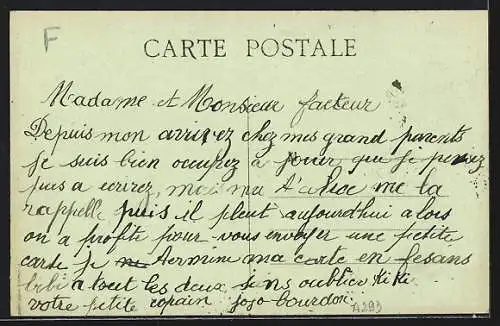 F
CARTE POSTALE
Madame et Monsieur facteur
Depuis mon arrivez chez mes grand parents
je suis bien occupez a jouer que je
puis a ecrirez, mais ma me la
rappelle puis il pleut aujourd'hui alois
on a profite pour vous envoyer une petite
carte je termine ma carte en fesans
bibi a tout les deux sens oublier kiki
votre petite copain jojo bourdon
A293